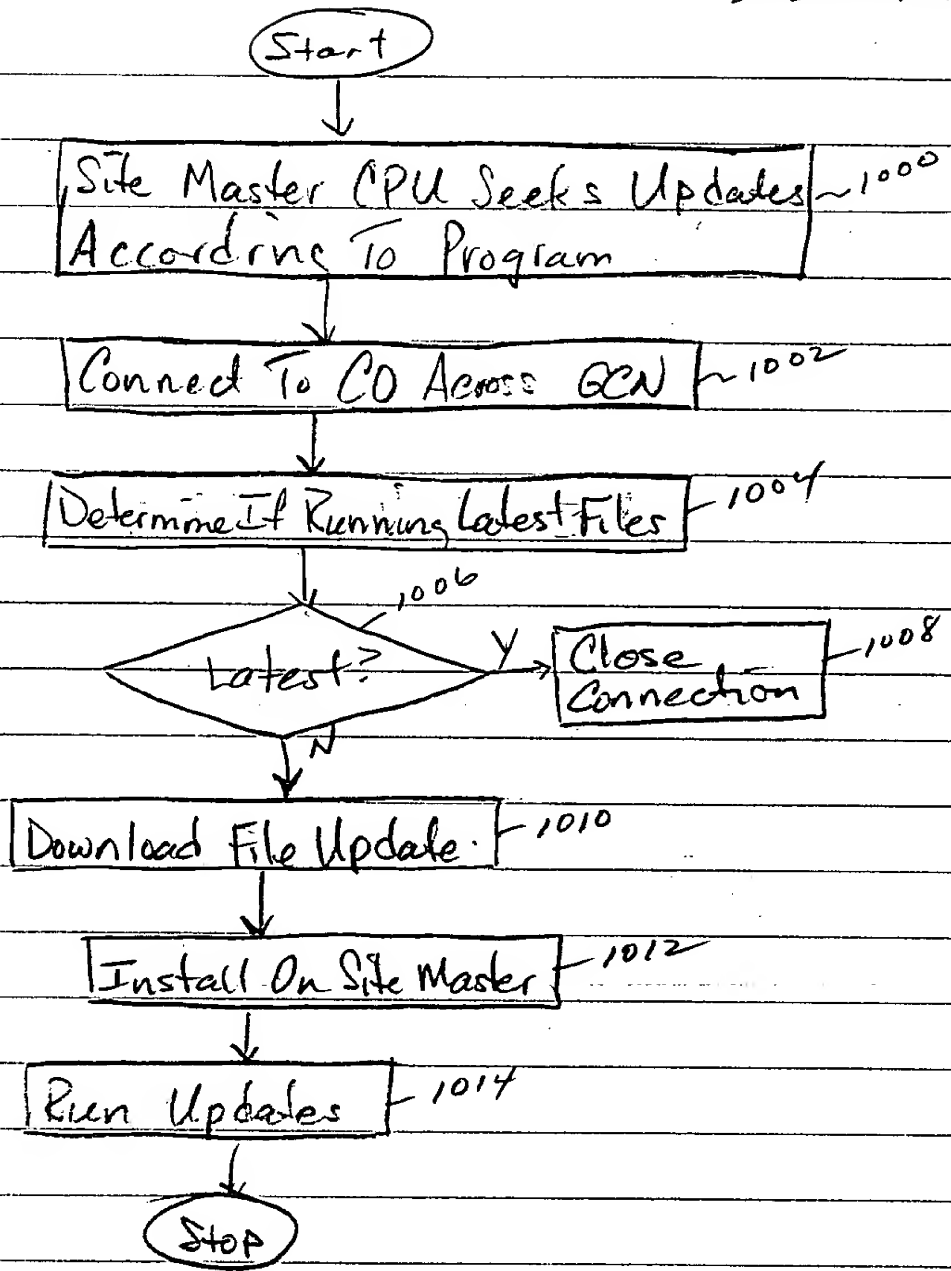 Start
Site Master CPU Seeks Updates
According To Program
1000
Connect To CO Across GCN
1002
Determine If Running Latest Files
1004
1006
Latest?
Y
Close
Connection
1008
N
Download File Update
1010
Install On Site Master
1012
Run Updates
1014
Stop